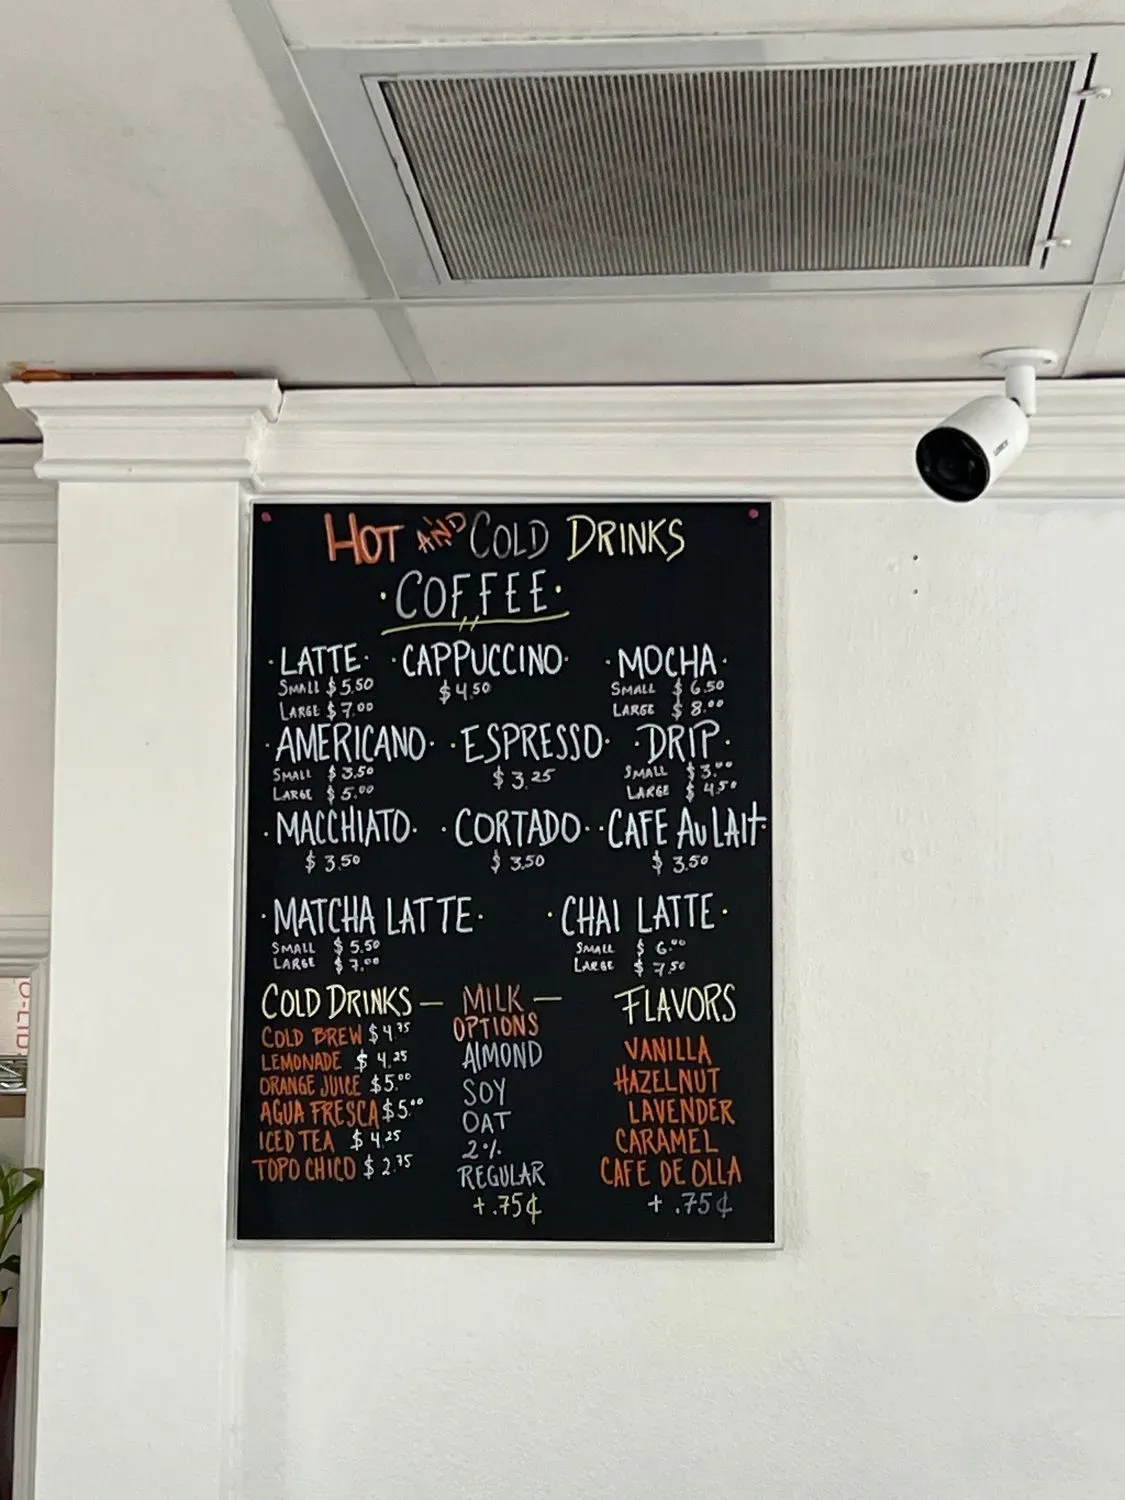 HOT AND COLD DRINKS
·COFFEE·
·LATTE· ·CAPPUCCINO· ·MOCHA·
SMALL $5.50 $4.50 SMALL $6.50
LARGE $7.00 LARGE $8.00
·AMERICANO· ·ESPRESSO· ·DRIP·
SMALL $3.50 $3.25 SMALL $3.00
LARGE $5.00 LARGE $4.50
·MACCHIATO· ·CORTADO· ·CAFE AU LAIT·
$3.50 $3.50 $3.50
·MATCHA LATTE· ·CHAI LATTE·
SMALL $5.50 SMALL $6.00
LARGE $7.00 LARGE $7.50
COLD DRINKS —
COLD BREW $4.75
LEMONADE $4.25
ORANGE JUICE $5.00
AGUA FRESCA $5.00
ICED TEA $4.25
TOPO CHICO $2.75
MILK —
OPTIONS
AlMOND
SOY
OAT
2%
REGULAR
+.75¢
FLAVORS
VANILLA
HAZELNUT
LAVENDER
CARAMEL
CAFE DE OLLA
+ .75¢